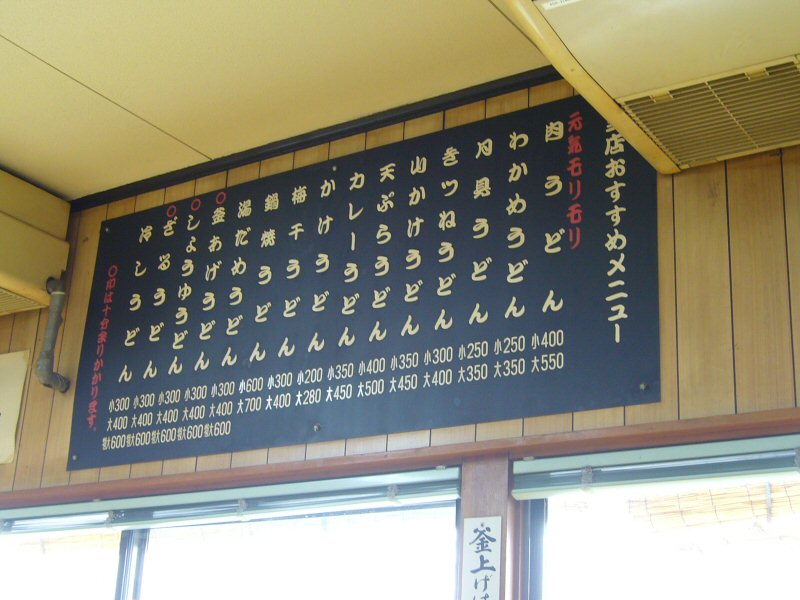 当店おすすめメニュー
元気モリモリ
肉うどん 小400 大550
わかめうどん 小250 大350
月見うどん 小250 大350
きつねうどん 小300 大400
山かけうどん 小350 大450
天ぷらうどん 小400 大500
カレーうどん 小350 大450
かけうどん 小200 大280
梅干うどん 小300 大400
鍋焼うどん 小600 大700
湯だめうどん 小300 大400 特大600
○釜あげうどん 小300 大400 特大600
○しょうゆうどん 小300 大400 特大600
○ざるうどん 小300 大400 特大600
冷しうどん 小300 大400 特大600
○印は十分余りかかります。
釜上げ